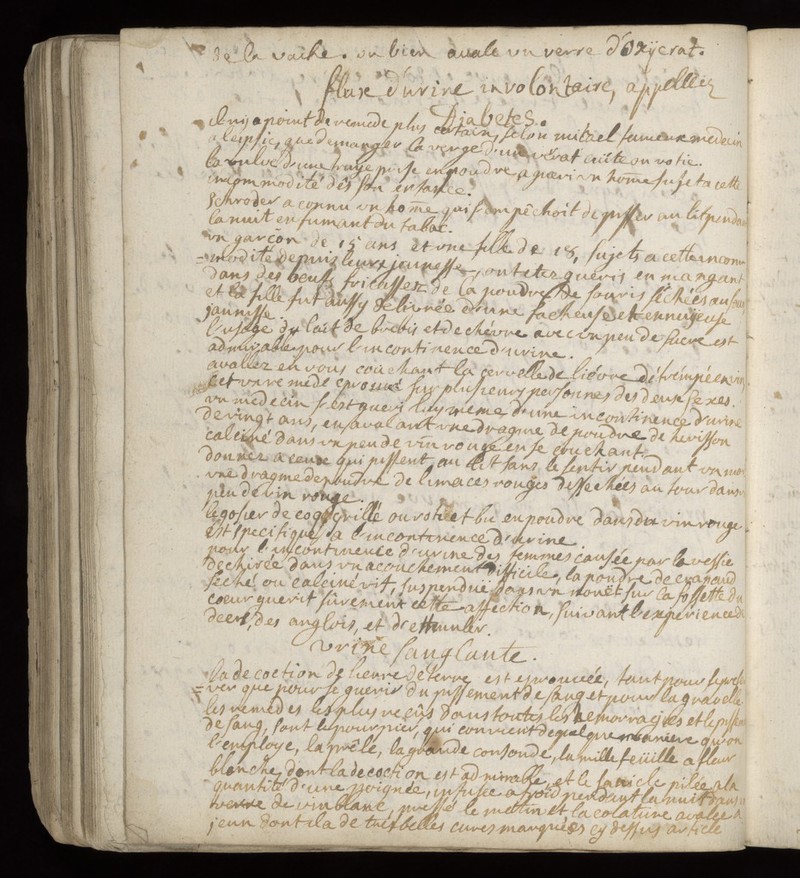 de la vache. ou bien avale un verre d'oxÿcrat.
flux d'urine involontaire, appellée
Diabetes.
il n'y a point de remede plus certain, selon mikael fameux medecin
a leipsic, que de manger la verge d'un verat cuitte ou rotie.
la vulve d'une truye prise en poudre a gueri un home sujet a cette
incommodité des son enfance.
schroder a connu un home qui s'empêchoit de pisser au lit pendant
la nuit en fumant du tabac.
un garçon de 15 ans et une fille de 18, sujets a cette incom
=modité depuis leurs jeunesse, ont etez gueris en mangant
dans des oeufs fricassez de la poudre de souris sechées au four
et la fille fut aussy delivrée d'une facheuse et ennuyeuse
jaunisse.
l'usage du lait de brebis et de chévre avec un peu de sucre est
admirable pour l'incontinence d'urine.
avallez en vous couchant la cervelle de liévre détrempée en vin
c'est un remede eprouvé sur plusieurs personnes des deux sexes.
un medecin s'est gueri luy meme d'une incontinence d'urine
de vingt ans, en avalant une dragme de poudre de herisson
calciné dans un peu de vin rouge en se couchant.
donnez a ceux qui pissent au lit sans le sentir pendant un mois
une dragme de poudre de limaces rouges dessechées au four dans
peu de vin rouge.
le gosier de coq grillé ou rotie et bu en poudre dans du vin rouge
est specifique a l'incontinence d'urine
pour l'incontinence d'urine des femmes causée par la vessie
dechirée dans un acouchement difficile, la poudre de crapaud
seché ou calciné vif, suspendüe dans un nouët sur la fossette du
coeur guerit sûrement cette affection, suivant l'experience de
deers, des anglois, et d'ettmuler.
urine sanglante.
la decoction de lierre de terre est eprouvée, tant pour se preser
=ver que pour se guerir du pissement de sang et pour la gravelle
les remedes les plus recius dans toutes les hemorragies et le pissem
de sang, sont le pourpier, qui convient de quelque maniere qu'on
l'employe, la prêle, la grande consoude, la mille feüille a fleur
blanche dont la decoction est admirable, et le sanicle pilée a la
quantité d'une poignée, infusée a froid pendant la nuit dans
verre de vin blanc, pressé le matin et la colature avalée a
jeun dont il a de tres belles cures marquées cy dessus article